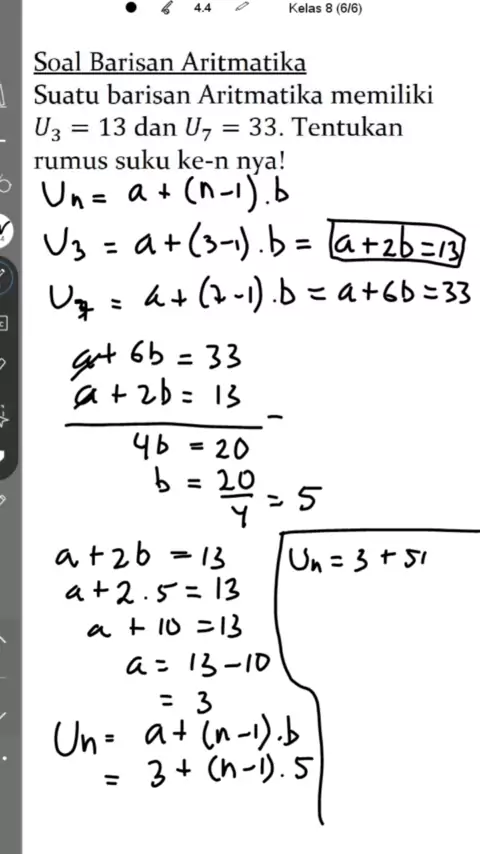 4.4 Kelas 8 (6/6)
Soal Barisan Aritmatika
Suatu barisan Aritmatika memiliki
U₃ = 13 dan U₇ = 33. Tentukan
rumus suku ke-n nya!
Un = a + (n-1).b
U3 = a + (3-1).b = a+2b=13
U7 = a + (7-1).b = a+6b=33
a+ 6b = 33
a + 2b = 13 -
4b = 20
b = 20/4 = 5
a+2b = 13
a+2.5 = 13
a + 10 = 13
a = 13-10
= 3
Un = a+(n-1).b
= 3+(n-1).5
Un = 3 + 5